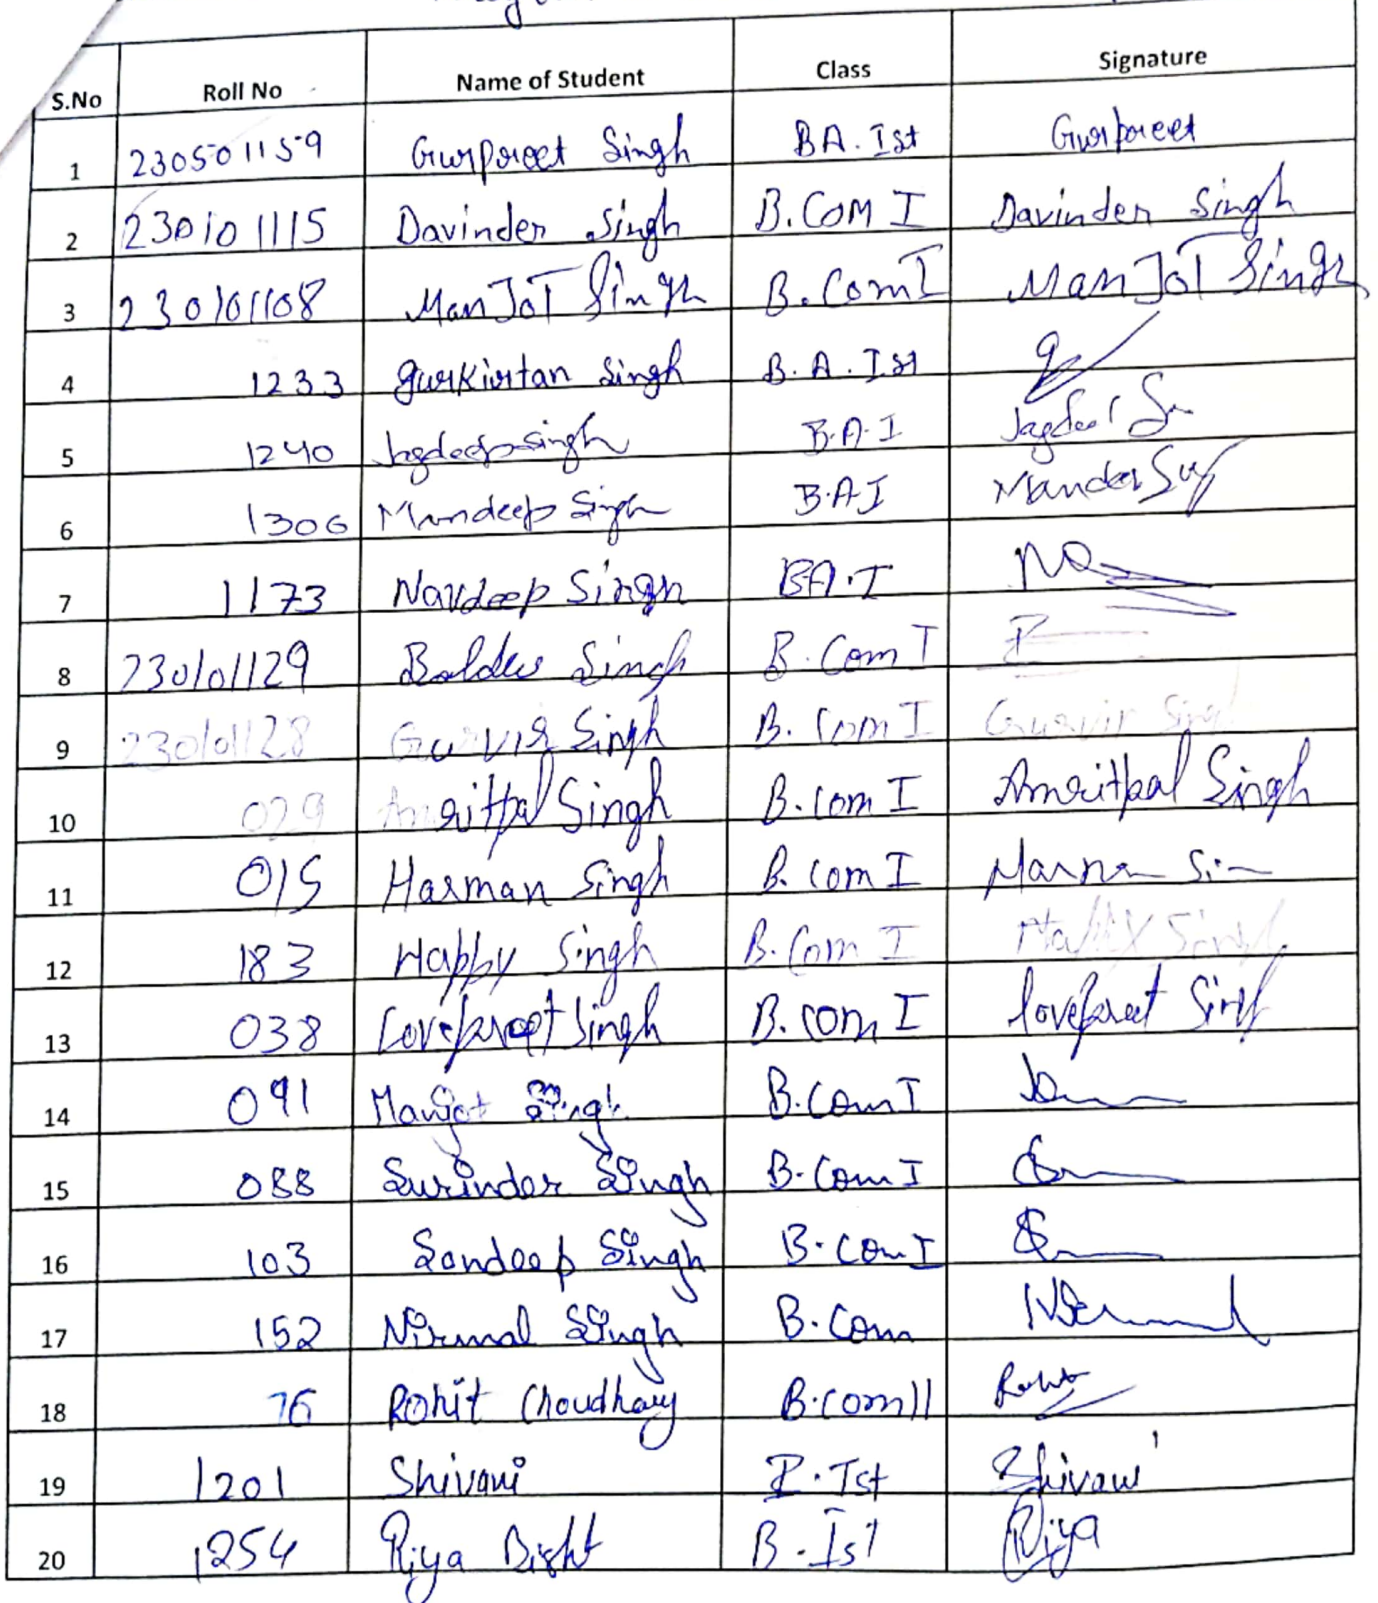 S.No Roll No Name of Student Class Signature
1 230501159 Gurpreet Singh BA. Ist Gurpreet
2 230101115 Davinder Singh B.COM I Davinder Singh
3 230101108 ManJoT Singh B.Com I ManJoT Singh
4 1233 gurkirtan singh B.A. Ist
5 1240 Jagdeep singh B.A.I
6 1306 Mandeep Singh B.A I
7 1173 Navdeep Singh BA.I
8 230101129 Baldev Singh B.Com I
9 230101128 Gurvir Singh B.Com I Gurvir Singh
10 029 Amritpal Singh B.com I Amritpal Singh
11 015 Harman Singh B.com I
12 183 Happy Singh B.Com I Happy Singh
13 038 Lovepreet Singh B.com I lovepreet Singh
14 091 Manjot Singh B.Com I
15 088 Surinder Singh B.Com I
16 103 Sandeep Singh B.Com I
17 152 Nirmal Singh B.Com
18 76 Rohit Choudhary B.com II
19 1201 Shivani Ist Shivani
20 1254 Riya Bisht B.Ist Riya